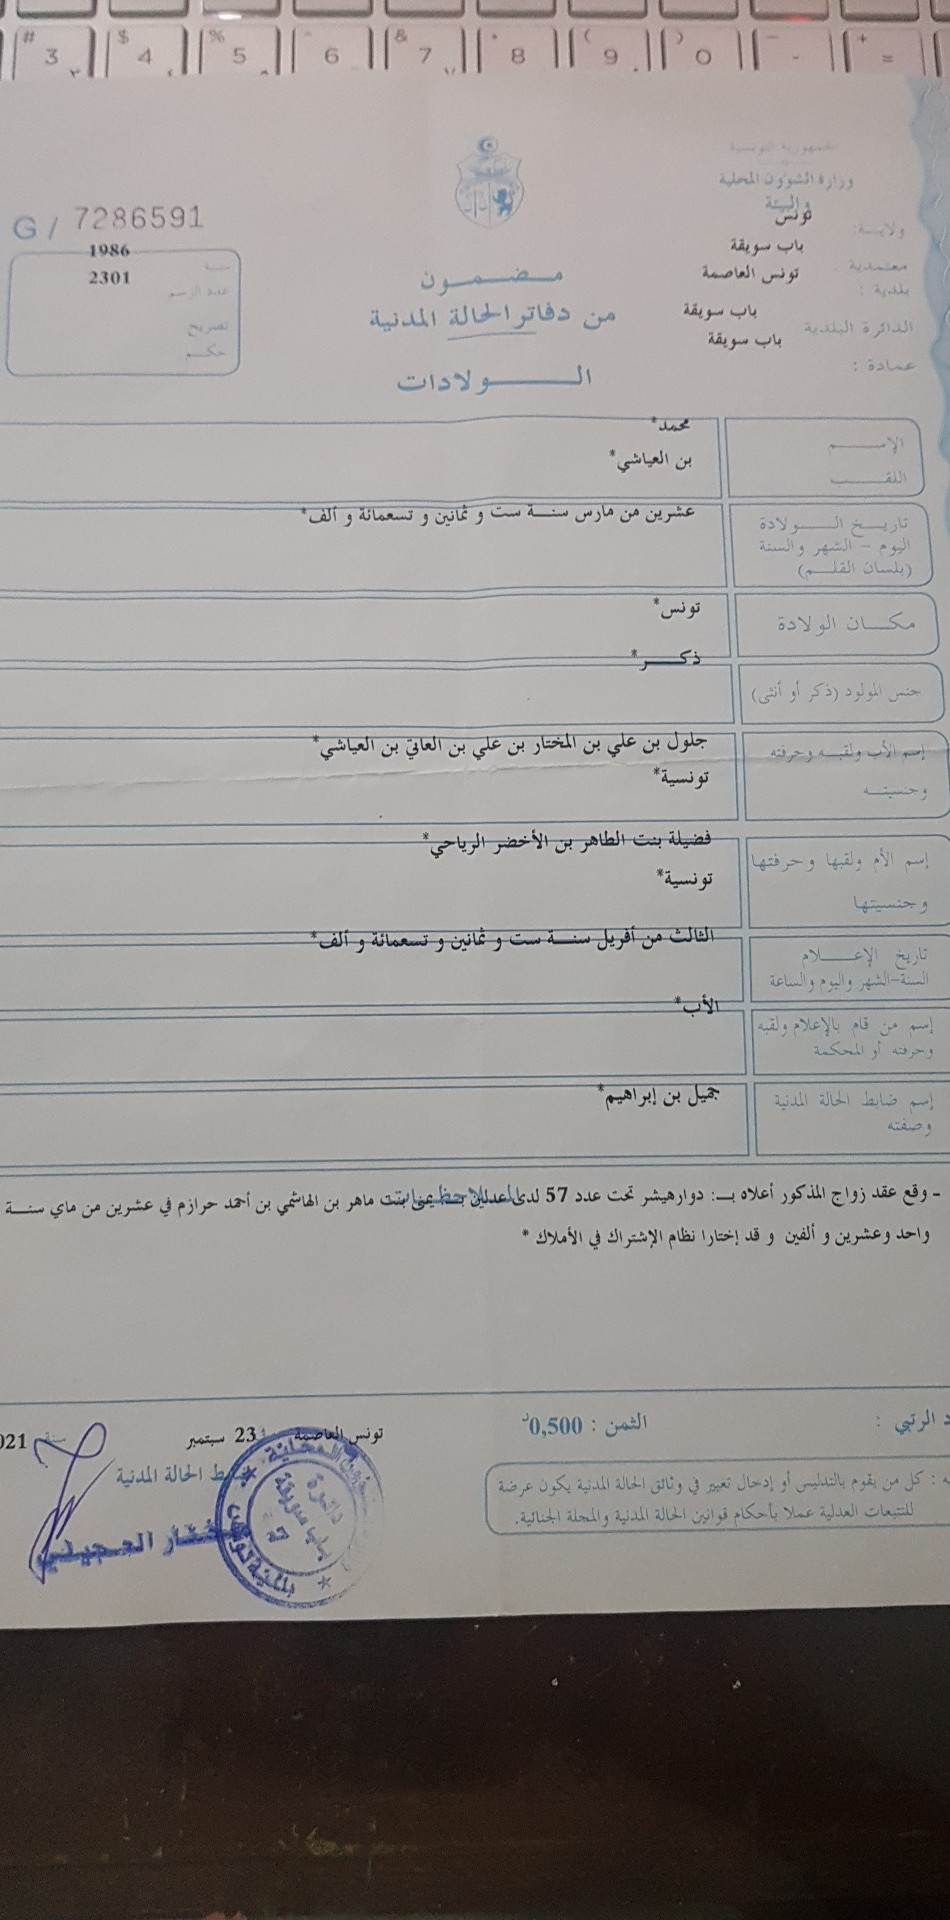 # 3 ٣ $ 4 ٤ % 5 ٥ ^ 6 & 7 ٧ * 8 ( 9 . ) 0 _ - + =
الجمهورية التونسية
وزارة الشؤون المحلية
والبيئة
G / 7286591
ولاية: تونس
معتمدية باب سويقة
بلدية : تونس العاصمة
الدائرة البلدية باب سويقة
عمادة : باب سويقة
سنة 1986
عدد الرسم 2301
تصريح
حكم
مضمون
من دفاتر الحالة المدنية
الولادات
الإسم محمد*
اللقب بن العياشي*
تاريخ الولادة عشرين من مارس سنة ست و ثمانين و تسعمائة و ألف*
اليوم - الشهر والسنة
(بلسان القلم)
مكان الولادة تونس*
جنس المولود (ذكر أو أنثى) ذكر*
إسم الأب ولقبه وحرفته جلول بن علي بن المختار بن علي بن العاتي بن العياشي*
وجنسيته تونسية*
إسم الأم ولقبها وحرفتها فضيلة بنت الطاهر بن الأخضر الرياحي*
وجنسيتها تونسية*
تاريخ الإعلام الثالث من أفريل سنة ست و ثمانين و تسعمائة و ألف*
السنة-الشهر واليوم والساعة
إسم من قام بالإعلام ولقبه الأب*
وحرفته أو المحكمة
إسم ضابط الحالة المدنية جميل بن إبراهيم*
وصفته
الملاحظات
- وقع عقد زواج المذكور أعلاه بـ: دوارهيشر تحت عدد 57 لدى عدلين بـ يمنى بنت ماهر بن الهاشمي بن أحمد حرازم في عشرين من ماي سنة
واحد وعشرين و ألفين و قد إختارا نظام الإشتراك في الأملاك *
د الرتبي :
الثمن : 0,500د
تونس العاصمة 23 سبتمبر سنة 021
ضابط الحالة المدنية
: كل من يقوم بالتدليس أو إدخال تغيير في وثائق الحالة المدنية يكون عرضة
للتتبعات العدلية عملا بأحكام قوانين الحالة المدنية والمجلة الجنائية.
دائرة
باب سويقة
بلدية تونس